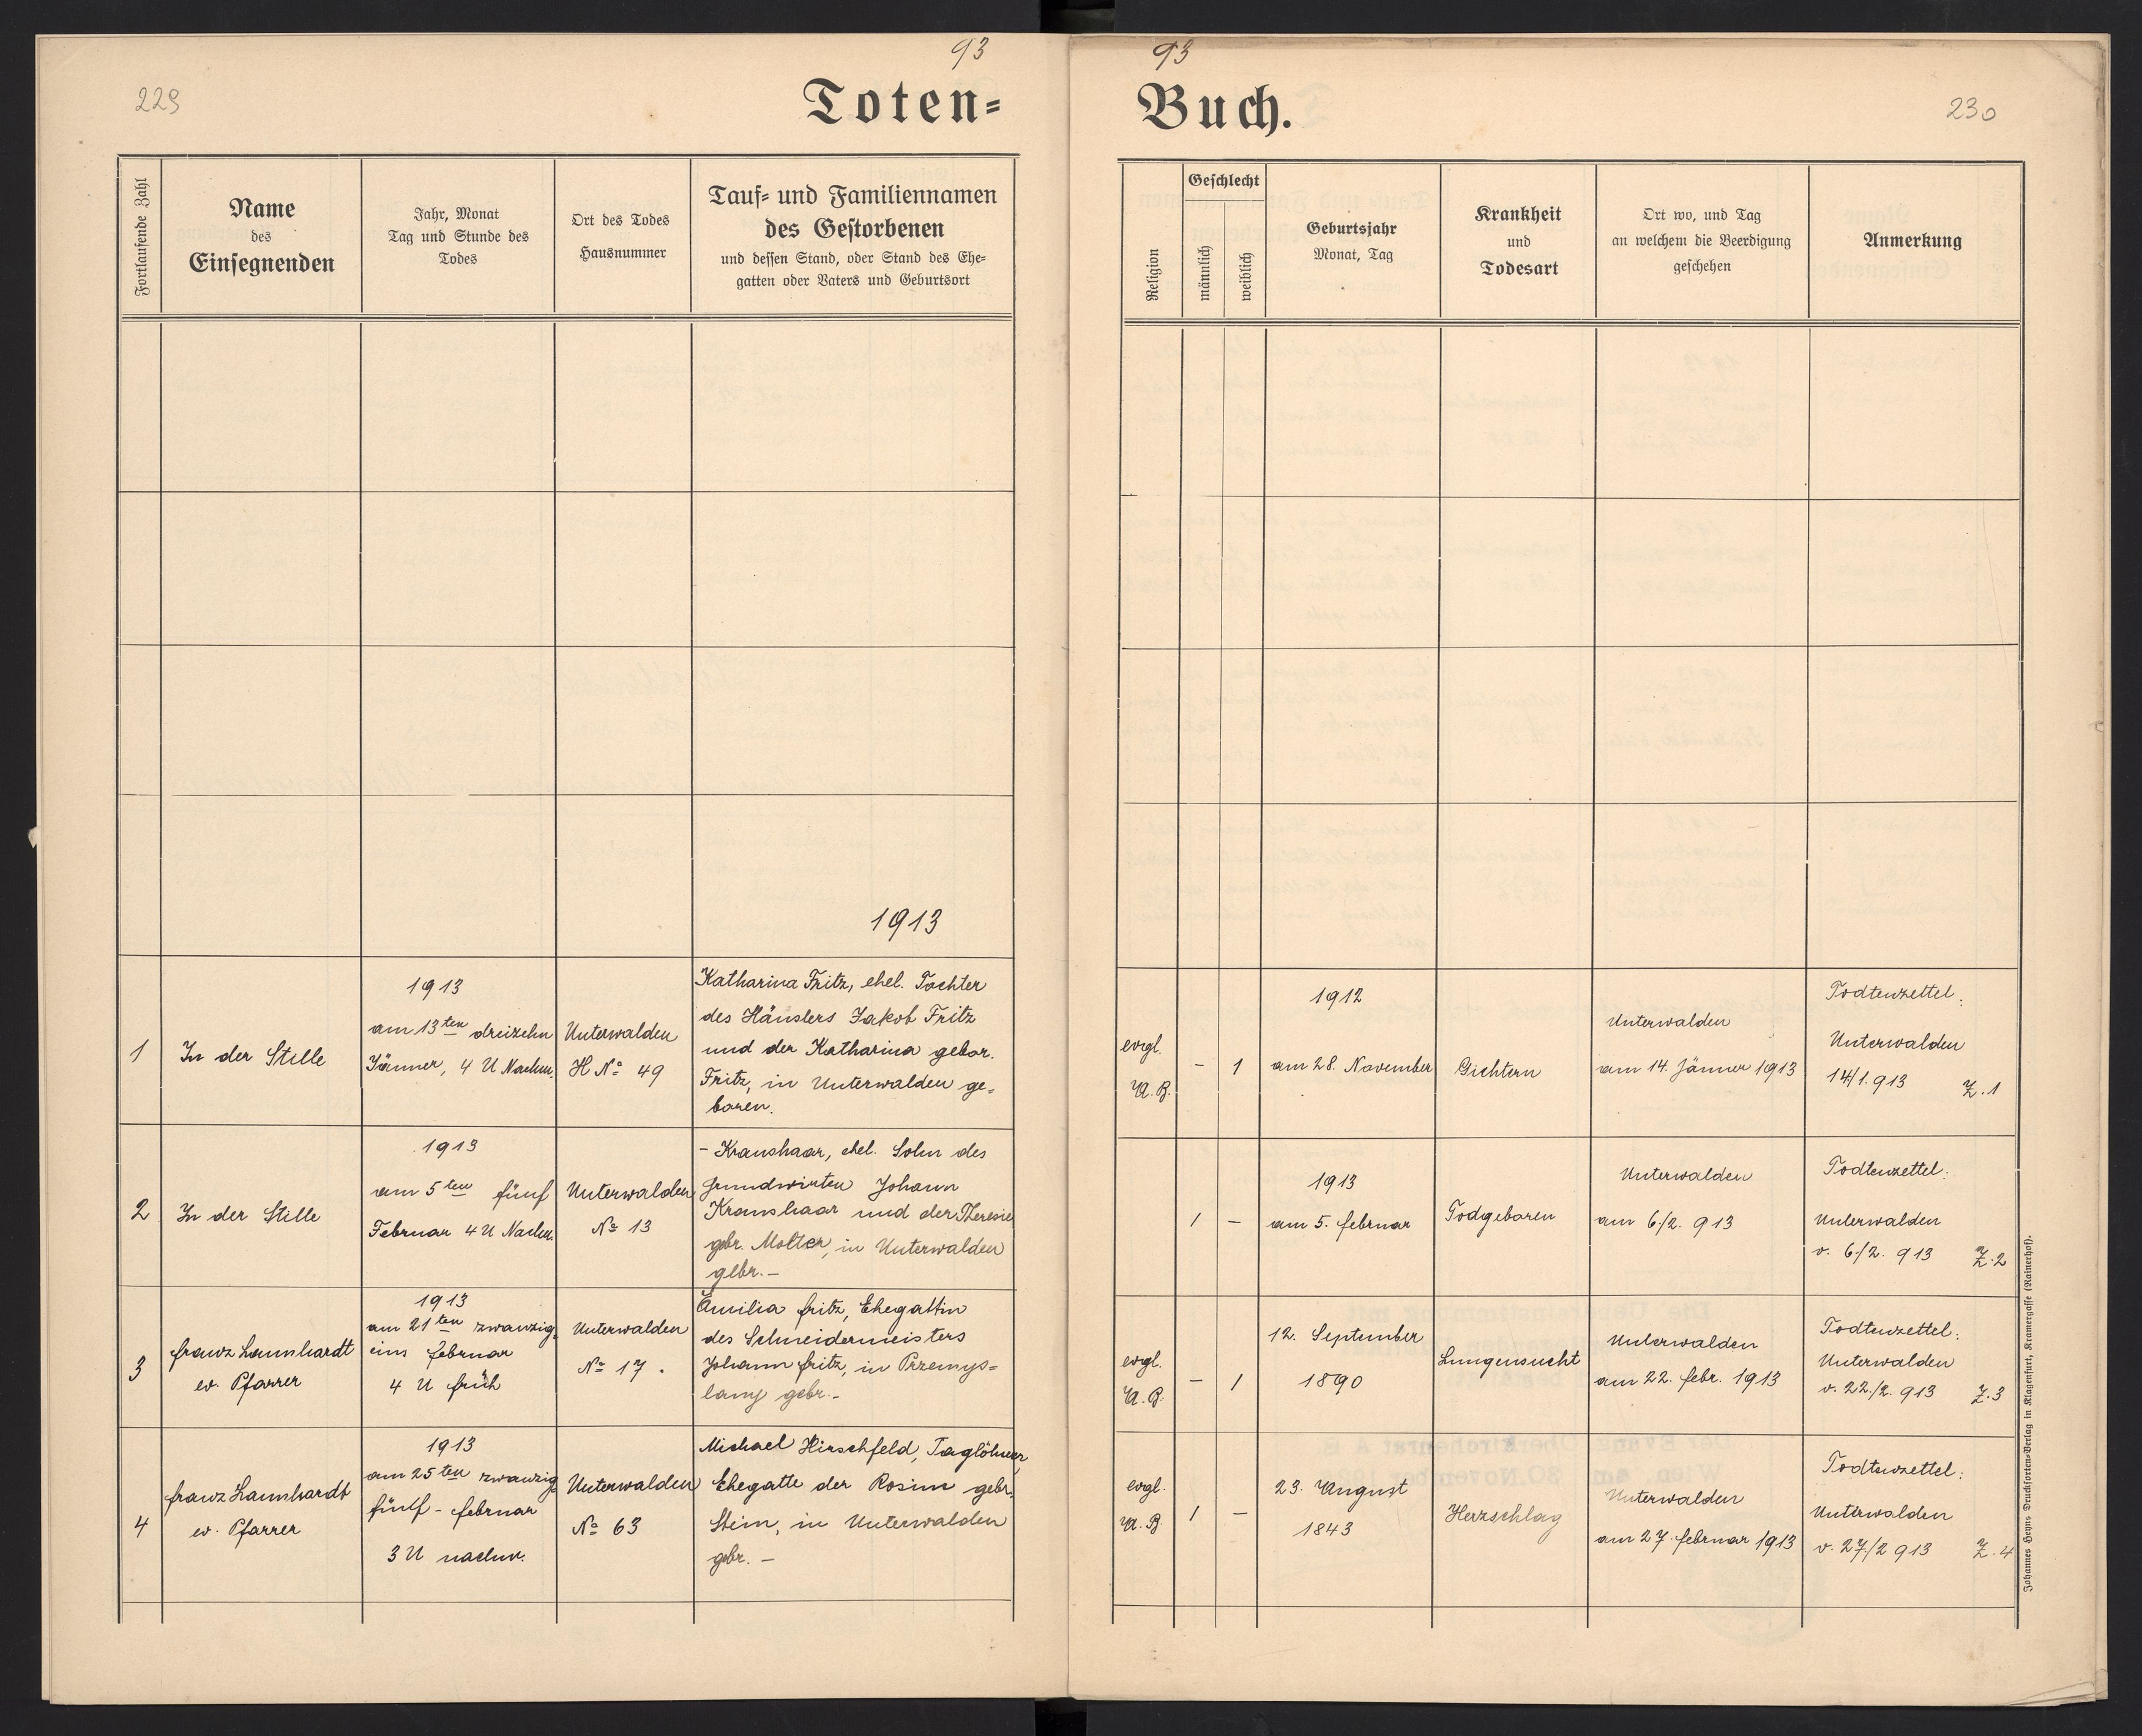 93
93
229
Toten=
Buch.
230
Fortlaufende Zahl
Name
des
Einsegnenden
Jahr, Monat
Tag und Stunde des
Todes
Ort des Todes
Hausnummer
Tauf= und Familiennamen
des Gestorbenen
und dessen Stand, oder Stand des Ehe=
gatten oder Vaters und Geburtsort
Religion
Geschlecht
männlich
weiblich
Geburtsjahr
Monat, Tag
Krankheit
und
Todesart
Ort wo, und Tag
an welchem die Beerdigung
geschehen
Anmerkung
1913
1
In der Stille
1913
am 13ten dreizehn
Jänner, 4 U Nachm.
Unterwalden
H No 49
Katharina Fritz, ehel. Tochter
des Häuslers Jakob Fritz
und der Katharina gebor.
Fritz, in Unterwalden ge=
boren.
evgl.
A. B.
- 1
1912
am 28. November
Gichtern
Unterwalden
am 14. Jänner 1913
Todtenzettel:
Unterwalden
14/1. 913 Z. 1
2
In der Stille
1913
am 5ten fünf
Februar 4 U Nachm.
Unterwalden
No 13
- Kraushaar, ehel. Sohn des
Grundwirten Johann
Kraushaar und der Theresie
gebr. Molter, in Unterwalden
gebr. -
1 -
1913
am 5. Februar
Todgeboren
Unterwalden
am 6/2. 913
Todtenzettel:
Unterwalden
v. 6./2. 913 Z. 2
3
Franz Lannhardt
ev. Pfarrer
1913
am 21ten zwanzig=
eins Februar
4 U früh
Unterwalden
No 17.
Emilia Fritz, Ehegattin
des Schneidermeisters
Johann Fritz, in Przemys=
lany gebr. -
evgl.
A. B.
- 1
12. September
1890
Lungensucht
Unterwalden
am 22. Febr. 1913
Todtenzettel:
Unterwalden
v. 22./2. 913 Z. 3
4
Franz Lannhardt
ev. Pfarrer
1913
am 25ten zwanzig
fünf - Februar
3 U nachm.
Unterwalden
No 63
Michael Hirschfeld, Taglöhner,
Ehegatte der Rosine gebr.
Stein, in Unterwalden
gebr. -
evgl.
A. B.
1 -
23. August
1843
Herzschlag
Unterwalden
am 27. Februar 1913
Todtenzettel:
Unterwalden
v. 27/2 913 Z. 4
Johannes Heyns Druckforten=Verlag in Klagenfurt, Kramergasse (Rainerhof).